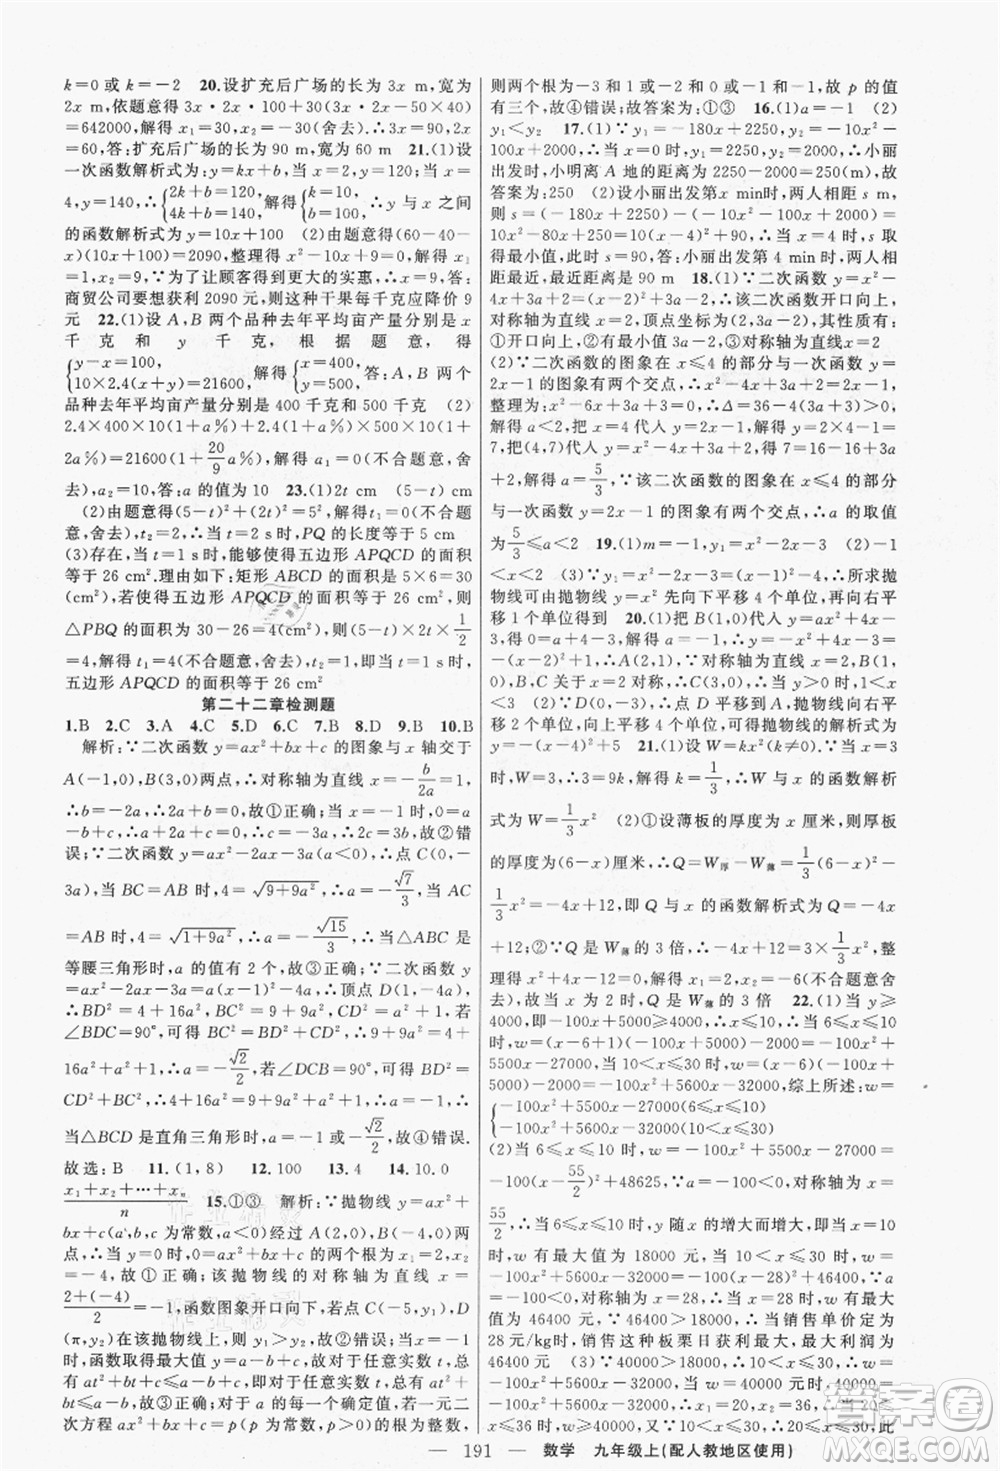 k=0或k=-2 20.设扩充后广场的长为3x m,宽为
2x m,依题意得3x·2x·100+30(3x·2x-50×40)
=642000,解得x₁=30,x₂=-30(舍去).∴3x=90,2x
=60,答:扩充后广场的长为90 m,宽为60 m 21.(1)设
一次函数解析式为y=kx+b,当x=2,y=120,当x=
4,y=140,∴{2k+b=120, 4k+b=140, 解得{k=10, b=100, ∴y与x之间
的函数解析式为y=10x+100 (2)由题意得(60-40-
x)(10x+100)=2090,整理得x²-10x+9=0,解得x₁
=1,x₂=9,∵为了让顾客得到更大的实惠,∴x=9,答:
商贸公司要想获利2090元,则这种干果每千克应降价9
元 22.(1)设A,B两个品种去年平均亩产量分别是x
千克和y千克,根据题意,得
{y-x=100, 10×2.4(x+y)=21600, 解得{x=400, y=500, 答:A,B两个
品种去年平均亩产量分别是400千克和500千克 (2)
2.4×400×10(1+a%)+2.4(1+a%)×500×10(1+
2a%)=21600(1+20/9 a%),解得a₁=0(不合题意,舍
去),a₂=10,答:a的值为10 23.(1)2t cm (5-t) cm
(2)由题意得(5-t)²+(2t)²=5²,解得t₁=0(不合题
意,舍去),t₂=2,当t=2 s时,PQ的长度等于5 cm
(3)存在,当t=1 s时,能够使得五边形APQCD的面积
等于26 cm².理由如下:矩形ABCD的面积是5×6=30
(cm²),使得五边形APQCD的面积等于26 cm²,则
△PBQ的面积为30-26=4(cm²),则(5-t)×2t×1/2
=4,解得t₁=4(不合题意,舍去),t₂=1,即当t=1 s时,
五边形APQCD的面积等于26 cm²
第二十二章检测题
1.B 2.C 3.A 4.C 5.D 6.C 7.B 8.D 9.B 10.B
解析:∵二次函数y=ax²+bx+c的图象与x轴交于
A(-1,0),B(3,0)两点,∴对称轴为直线x=-b/2a=1,
∴b=-2a,∴2a+b=0,故①正确;当x=-1时,0=a
-b+c,∴a+2a+c=0,∴c=-3a,∴2c=3b,故②错
误;∵二次函数y=ax²-2ax-3a(a<0),∴点C(0,-
3a),当BC=AB时,4=√(9+9a²),∴a=-√7/3,当AC
=AB时,4=√(1+9a²),∴a=-√15/3,∴当△ABC是
等腰三角形时,a的值有2个,故③正确;∵二次函数y
=ax²-2ax-3a=a(x-1)²-4a,∴顶点D(1,-4a),
∴BD²=4+16a²,BC²=9+9a²,CD²=a²+1,若
∠BDC=90°,可得BC²=BD²+CD²,∴9+9a²=4+
16a²+a²+1,∴a=-√2/2,若∠DCB=90°,可得BD²=
CD²+BC²,∴4+16a²=9+9a²+a²+1,∴a=-1,∴
当△BCD是直角三角形时,a=-1或-√2/2,故④错误.
故选:B 11.(1,8) 12.100 13.4 14.10.0
(x₁+x₂+…+xₙ)/n 15.①③ 解析:∵抛物线y=ax²+
bx+c(a,b,c为常数,a<0)经过A(2,0),B(-4,0)两
点,∴当y=0时,0=ax²+bx+c的两个根为x₁=2,x₂
=-4,故①正确;该抛物线的对称轴为直线x=
(2+(-4))/2=-1,函数图象开口向下,若点C(-5,y₁),D
(π,y₂)在该抛物线上,则y₁>y₂,故②错误;当x=-1
时,函数取得最大值y=a-b+c,故对于任意实数t,总
有at²+bt+c≤a-b+c,即对于任意实数t,总有at²
+bt≤a-b,故③正确;对于a的每一个确定值,若一元二
次方程ax²+bx+c=p(p为常数,p>0)的根为整数,
则两个根为-3和1或-2和0或-1和-1,故p的值
有三个,故④错误;故答案为:①③ 16.(1)a=-1 (2)
y₁<y₂ 17.(1)∵y=-180x+2250,y=-10x²-
100x+2000,∴当x=0时,y=2250,y=2000,∴小丽
出发时,小明离A地的距离为2250-2000=250(m),故
答案为:250 (2)设小丽出发第x min时,两人相距s m,
则s=(-180x+2250)-(-10x²-100x+2000)=
10x²-80x+250=10(x-4)²+90,∴当x=4时,s取得
最小值,此时s=90,答:小丽出发第4 min时,两人相距
最近,最近距离是90 m 18.(1)∵二次函数y=x²-
4x+3a+2=(x-2)²+3a-2,∴该二次函数开口向上,
对称轴为直线x=2,顶点坐标为(2,3a-2),其性质有:
①开口向上,②有最小值3a-2,③对称轴为直线x=2
(2)∵二次函数的图象在x≤4的部分与一次函数y=
2x-1的图象有两个交点,∴x²-4x+3a+2=2x-1,
整理为:x²-6x+3a+3=0,∴Δ=36-4(3a+3)>0,
解得a<2,把x=4代入y=2x-1,解得y=2×4-1=
7,把(4,7)代入y=x²-4x+3a+2得7=16-16+3a
+2,解得a=5/3,故该二次函数的图象在x≤4的部分
与一次函数y=2x-1的图象有两个交点,∴a的取值
为5/3≤a<2 19.(1)m=-1,y₁=x²-2x (2)-1
<x<2 (3)∵y=x²-2x-3=(x-1)²-4,∴所求抛
物线可由抛物线y=x²先向下平移4个单位,再向右平
移1个单位而得到 20.(1)把B(1,0)代入y=ax²+
4x-3得a+4-3=0,∴a=-1,∴y=-x²+4x-3=
-(x-2)²+1,∴对称轴为直线x=2,∵B(1,0),且点C
与点B关于x=2对称,∴C(3,0),∴当y>0时,1<x<
3 (2)∵D(0,-3),∴点D移到点A时,抛物线向右平
移2个单位,向上平移5个单位,可得抛物线的解析式为
y=-(x-4)²+5 21.(1)设W=kx²(k≠0).∵当x=3
时,W=3,∴3=9k,解得k=1/3,∴W与x的函数解析
式为W=1/3x² (2)①设薄板的厚度为x厘米,则厚板
的厚度为(6-x)厘米,∴Q=W厚-W薄=1/3(6-x)²-
1/3x²=-4x+12,即Q与x的函数解析式为Q=-4x
+12;②∵Q是W薄的3倍,∴-4x+12=3×1/3x²,整
理得x²+4x-12=0,解得x₁=2,x₂=-6(不合题意舍
去),故当x=2时,Q是W薄的3倍 22.(1)当y≥
4000,即-100x+5000≥4000,∴x≤10,∴当6≤x≤
10时,w=(x-6+1)(-100x+5000)-2000=-100x²
+5500x-27000,当10<x≤30时,w=(x-6)(-100x
+5000)-2000=-100x²+5600x-32000,综上所述:w=
{-100x²+5500x-27000(6≤x≤10)
-100x²+5600x-32000(10<x≤30)
(2)当6≤x≤10时,w=-100x²+5500x-27000=
-100(x-55/2)²+48625,∵a=-100<0,对称轴为x=
55/2,∴当6≤x≤10时,y随x的增大而增大,即当x=10
时,w有最大值为18000元,当10<x≤30时,w=
-100x²+5600x-32000=-100(x-28)²+46400,∵a
=-100<0,对称轴为x=28,∴当x=28时,w有最大
值为46400元,∵46400>18000,∴当销售单价定为
28元/kg时,销售这种板栗日获利最大,最大利润为
46400元 (3)∵40000>18000,∴10<x≤30,∴w=
-100x²+5600x-32000,当w=40000元时,40000=
-100x²+5600x-32000,∴x₁=20,x₂=36,∴当20≤
x≤36时,w≥40000,又∵10<x≤30,∴20≤x≤30,此
— 191 — 数学 九年级上(配人教地区使用)
答案卷
MXQE.COM